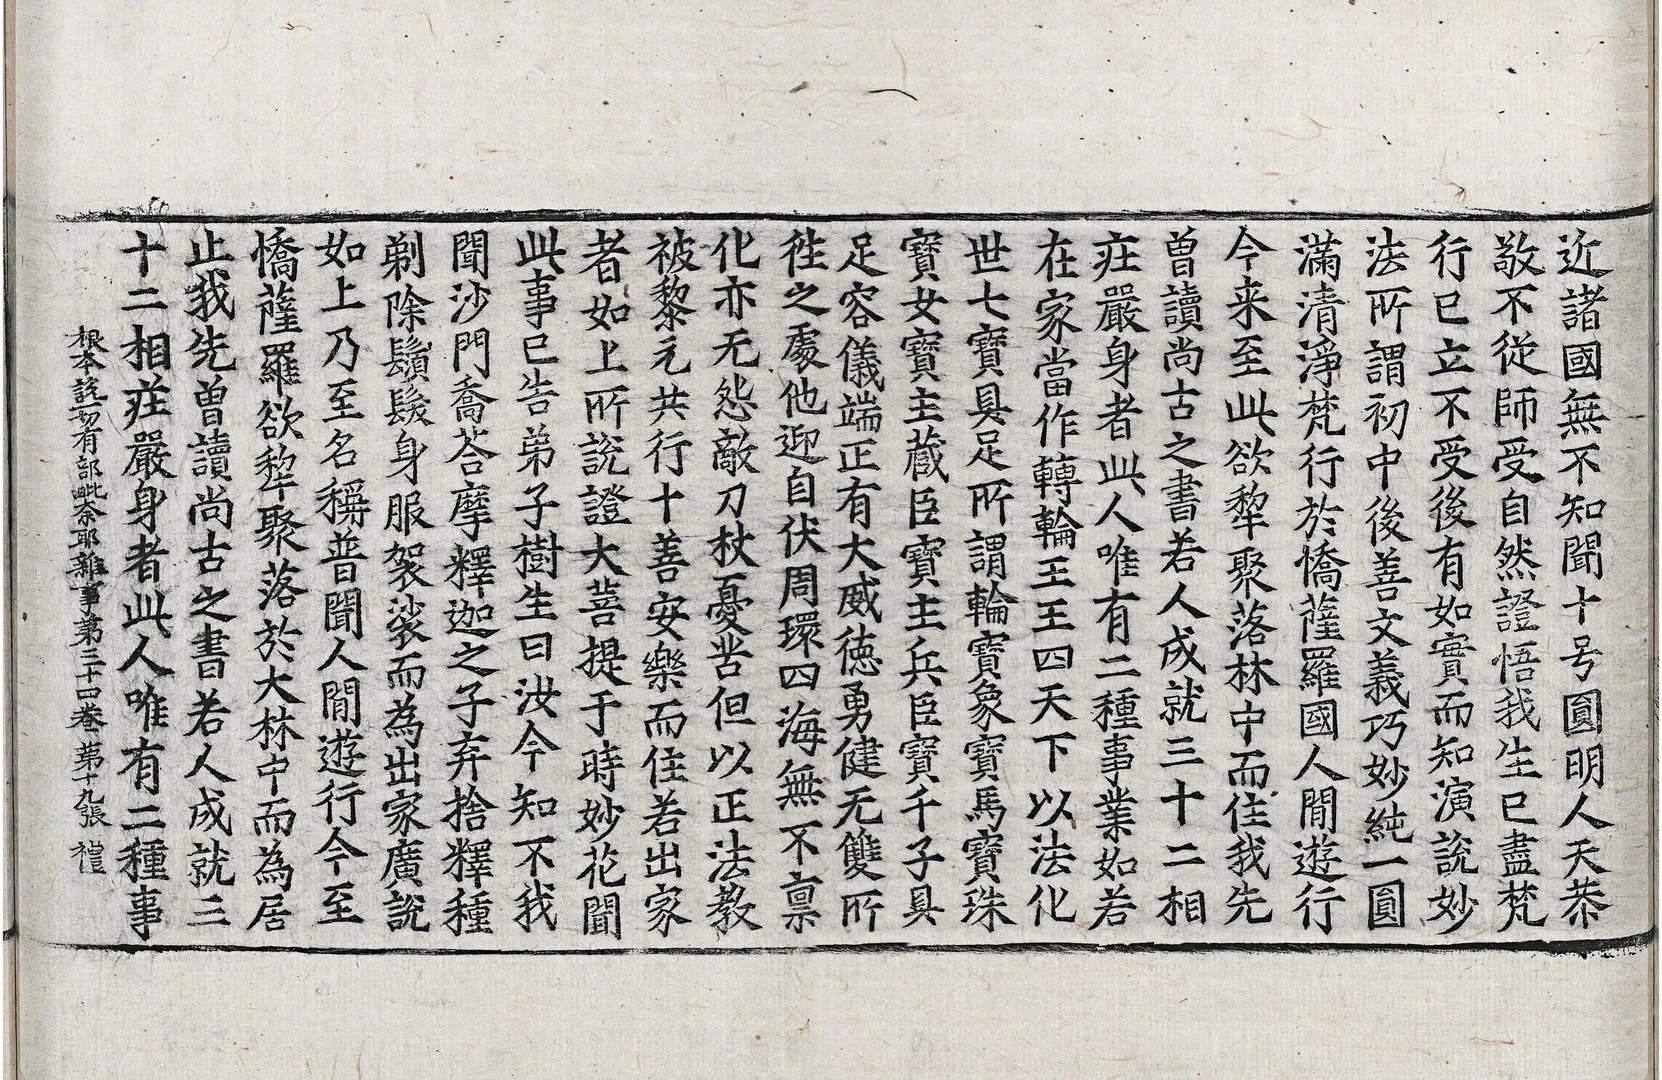 近諸國無不知聞十号圓明人天恭
敬不從師受自然證悟我生已盡梵
行已立不受後有如實而知演說妙
法所謂初中後善文義巧妙純一圓
滿清淨梵行於憍薩羅國人間遊行
今来至此欲犂聚落林中而住我先
曽讀尚古之書若人成就三十二相
荘嚴身者此人唯有二種事業如若
在家當作轉輪王王四天下以法化
世七寶具足所謂輪寶象寶馬寶珠
寶女寶主藏臣寶主兵臣寶千子具
足容儀端正有大威德勇健无雙所
徃之處他迎自伏周環四海無不稟
化亦无怨敵刀杖憂苦但以正法教
被黎元共行十善安樂而住若出家
者如上所說證大菩提于時妙花聞
此事已告弟子樹生曰汝今知不我
聞沙門喬荅摩釋迦之子弃捨釋種
剃除鬚髮身服袈裟而為出家廣說
如上乃至名稱普聞人間遊行今至
憍薩羅欲犂聚落於大林中而為居
止我先曽讀尚古之書若人成就三
十二相荘嚴身者此人唯有二種事
根本說一切有部毗奈耶雜事第三十四卷 第十九張 禮